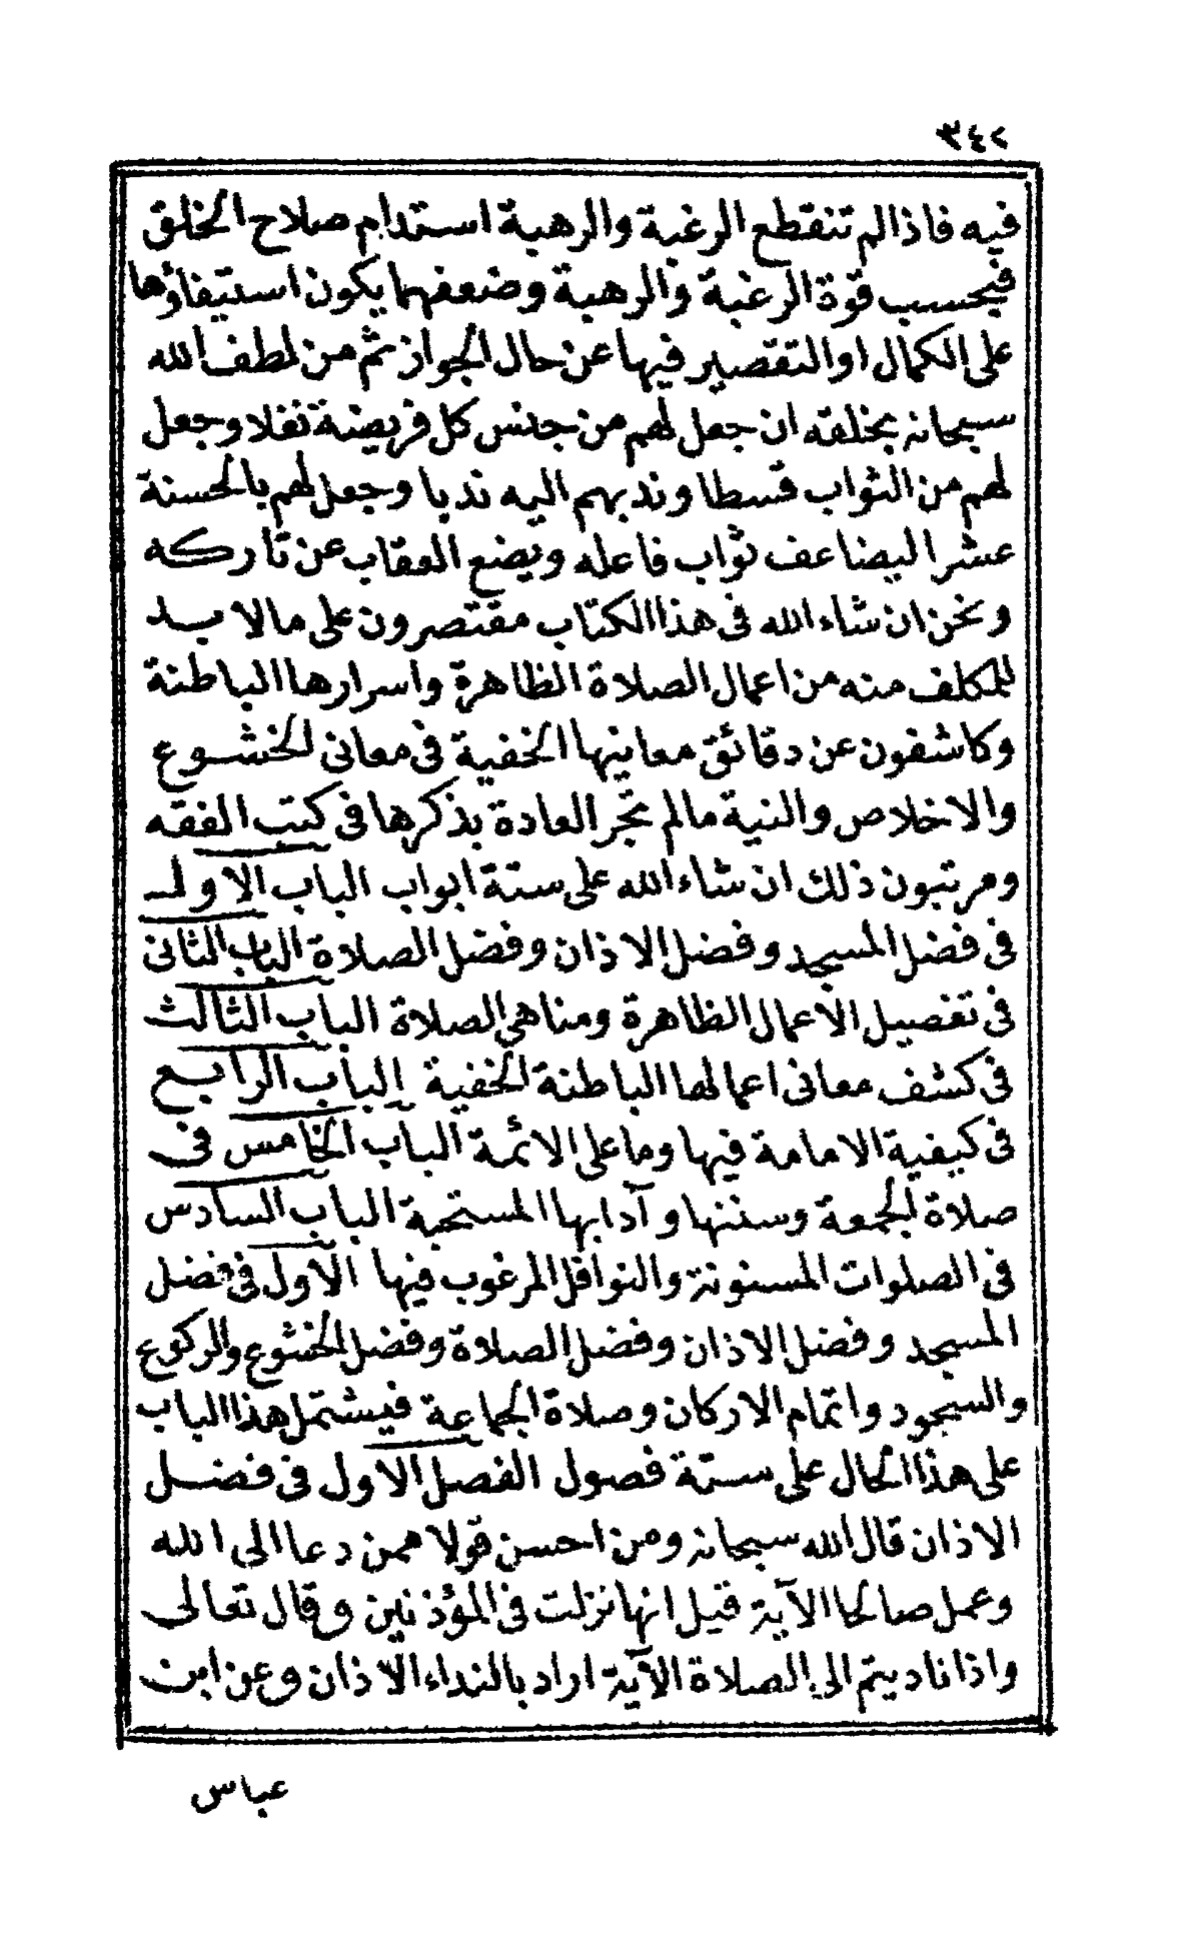 ٣٤٢
فيه فاذالم تنقطع الرغبة والرهبة استدام صلاح الخلق
فبحسب قوة الرغبة والرهبة وضعفهما يكون استيفاؤها
على الكمال اوالتقصير فيها عن حال الجواز ثم من لطف الله
سبحانه بخلقه ان جعل لهم من جنس كل فريضة نفلا وجعل
لهم من الثواب قسطا وندبهم اليه ندبا وجعل لهم بالحسنة
عشرا ليضاعف ثواب فاعله ويضع العقاب عن تاركه
ونحن ان شاء الله فى هذا الكتاب مقتصرون على مالا بد
للمكلف منه من اعمال الصلاة الظاهرة واسرارها الباطنة
وكاشفون عن دقائق معاينها الخفية فى معانى الخشوع
والاخلاص والنية مالم تجر العادة بذكرها فى كتب الفقه
ومرتبون ذلك ان شاء الله على ستة ابواب الباب الاول
فى فضل المسجد وفضل الاذان وفضل الصلاة الباب الثانى
فى تفصيل الاعمال الظاهرة ومناهى الصلاة الباب الثالث
فى كشف معانى اعمالها الباطنة الخفية الباب الرابع
فى كيفية الامامة فيها وما على الائمة الباب الخامس فى
صلاة الجمعة وسننها وآدابها المستحبة الباب السادس
فى الصلوات المسنونة والنوافل المرغوب فيها الاول فى فضل
المسجد وفضل الاذان وفضل الصلاة وفضل الخشوع والركوع
والسجود واتمام الاركان وصلاة الجماعة فيشتمل هذا الباب
على هذا الحال على ستة فصول الفصل الاول فى فضل
الاذان قال الله سبحانه ومن احسن قولا ممن دعا الى الله
وعمل صالحا الآية قيل انها نزلت فى المؤذنين وقال تعالى
واذا ناديتم الى الصلاة الآية اراد بالنداء الاذان وعن ابن
عباس